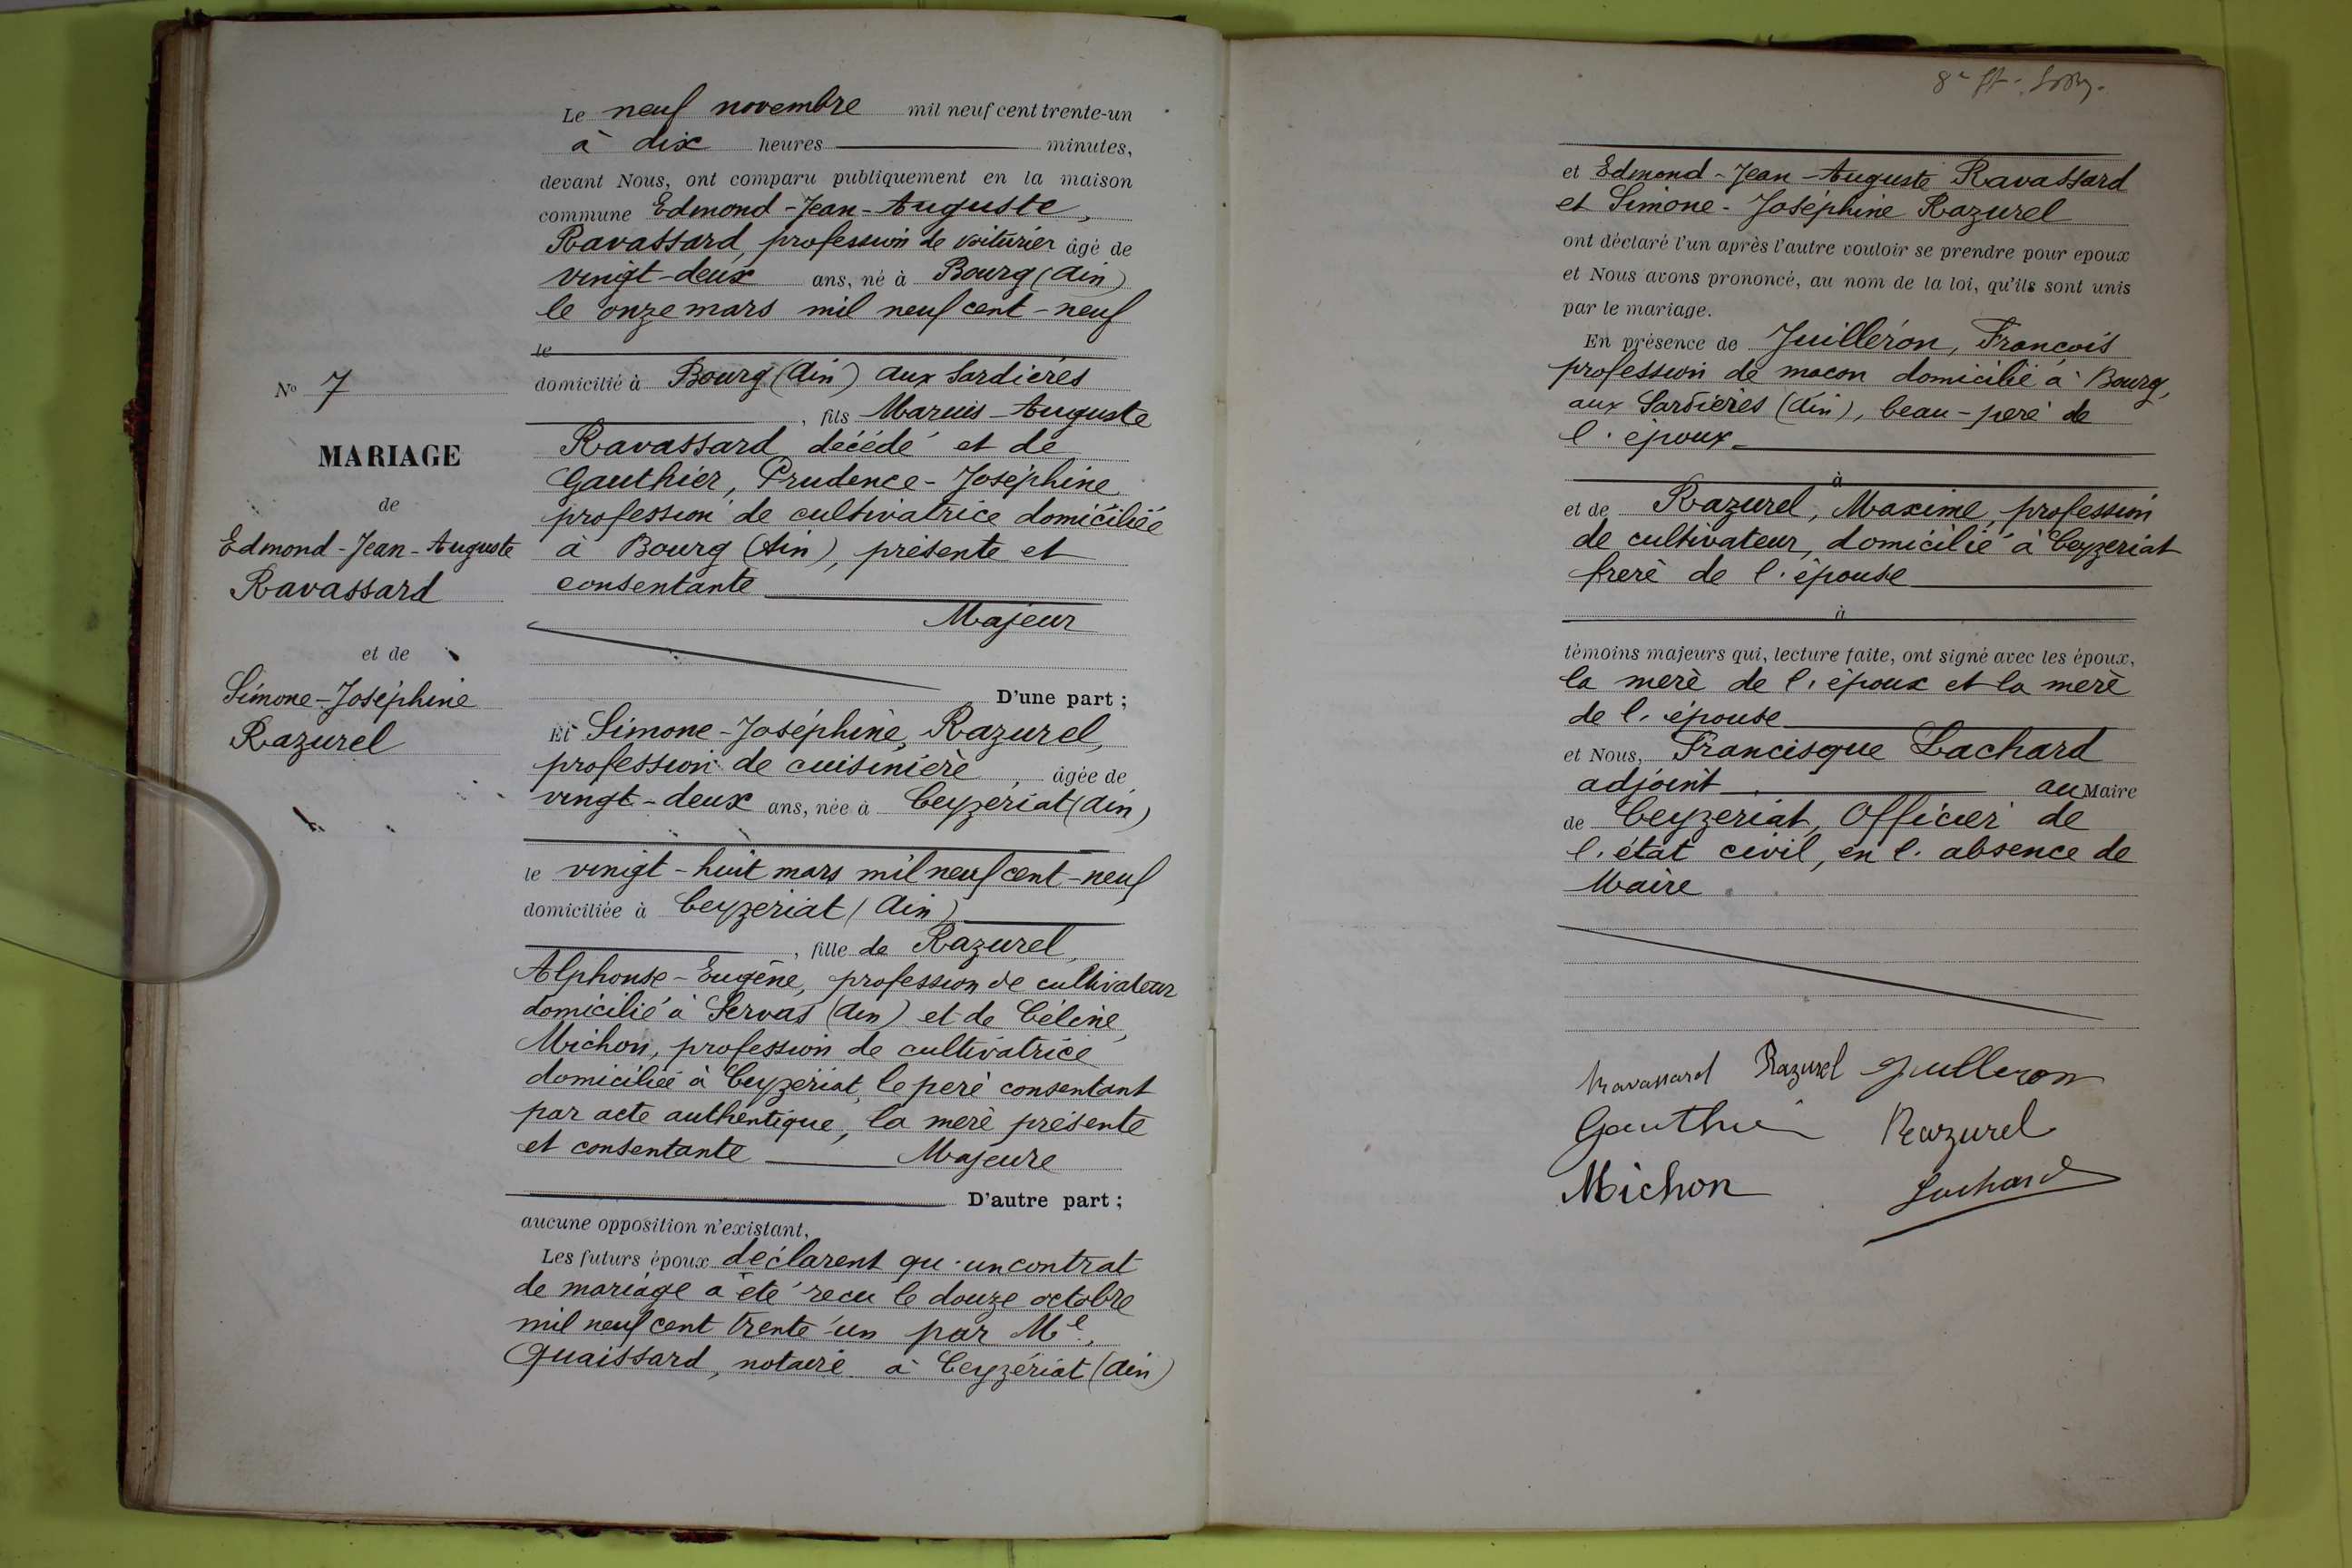 Le neuf novembre mil neuf cent trente-un
à dix heures minutes,
devant Nous, ont comparu publiquement en la maison
commune Edmond-Jean-Auguste,
Ravassard, profession de voiturier âgé de
vingt-deux ans, né à Bourg (Ain)
le onze mars mil neuf cent-neuf
le
domicilié à Bourg (Ain) aux Sardières
, fils Marius-Auguste
Ravassard décédé et de
Gauthier, Prudence-Joséphine
profession de cultivatrice domiciliée
à Bourg (Ain), présente et
consentante
Majeur
D'une part ;
N° 7
MARIAGE
de
Edmond-Jean-Auguste
Ravassard
et de
Simone-Joséphine
Razurel
Et Simone-Joséphine, Razurel,
profession de cuisinière, âgée de
vingt-deux ans, née à Ceyzériat (Ain)
le vingt-huit mars mil neuf cent-neuf
domiciliée à Ceyzeriat (Ain)
, fille de Razurel,
Alphonse-Eugène, profession de cultivateur
domicilié à Servas (Ain) et de Céline,
Michon, profession de cultivatrice
domiciliée à Ceyzériat, le père consentant
par acte authentique, la mère présente
et consentante Majeure
D'autre part ;
aucune opposition n'existant,
Les futurs époux déclarent qu'un contrat
de mariage a été recu le douze octobre
mil neuf cent trente-un par Me,
Quaissard, notaire à Ceyzériat (Ain)
et Edmond-Jean-Auguste Ravassard
et Simone-Joséphine Razurel
ont déclaré l'un après l'autre vouloir se prendre pour epoux
et Nous avons prononcé, au nom de la loi, qu'ils sont unis
par le mariage.
En présence de Juilleron, Francois
profession de macon domicilié à Bourg,
aux Sardières (Ain), beau-père de
l'époux
à
et de Razurel, Maxime, profession
de cultivateur, domicilié à Ceyzeriat
frère de l'épouse
à
témoins majeurs qui, lecture faite, ont signé avec les époux,
la mère de l'époux et la mère
de l'épouse
et Nous, Francisque Lachard
adjoint au Maire
de Ceyzeriat, Officier de
l'état civil, en l'absence de
Maire
Ravassard Razurel Juilleron
Gauthier Razurel
Michon Lachard